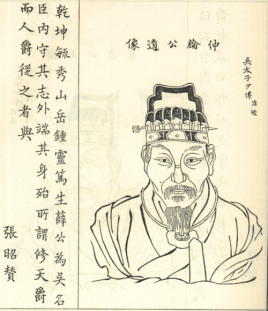 仲綸公遺像
吳太子少傅
乾坤毓秀山岳鍾靈篤生薛公為吳名
臣內守其志外端其身殆所謂修天爵
而人爵從之者與
張昭贊